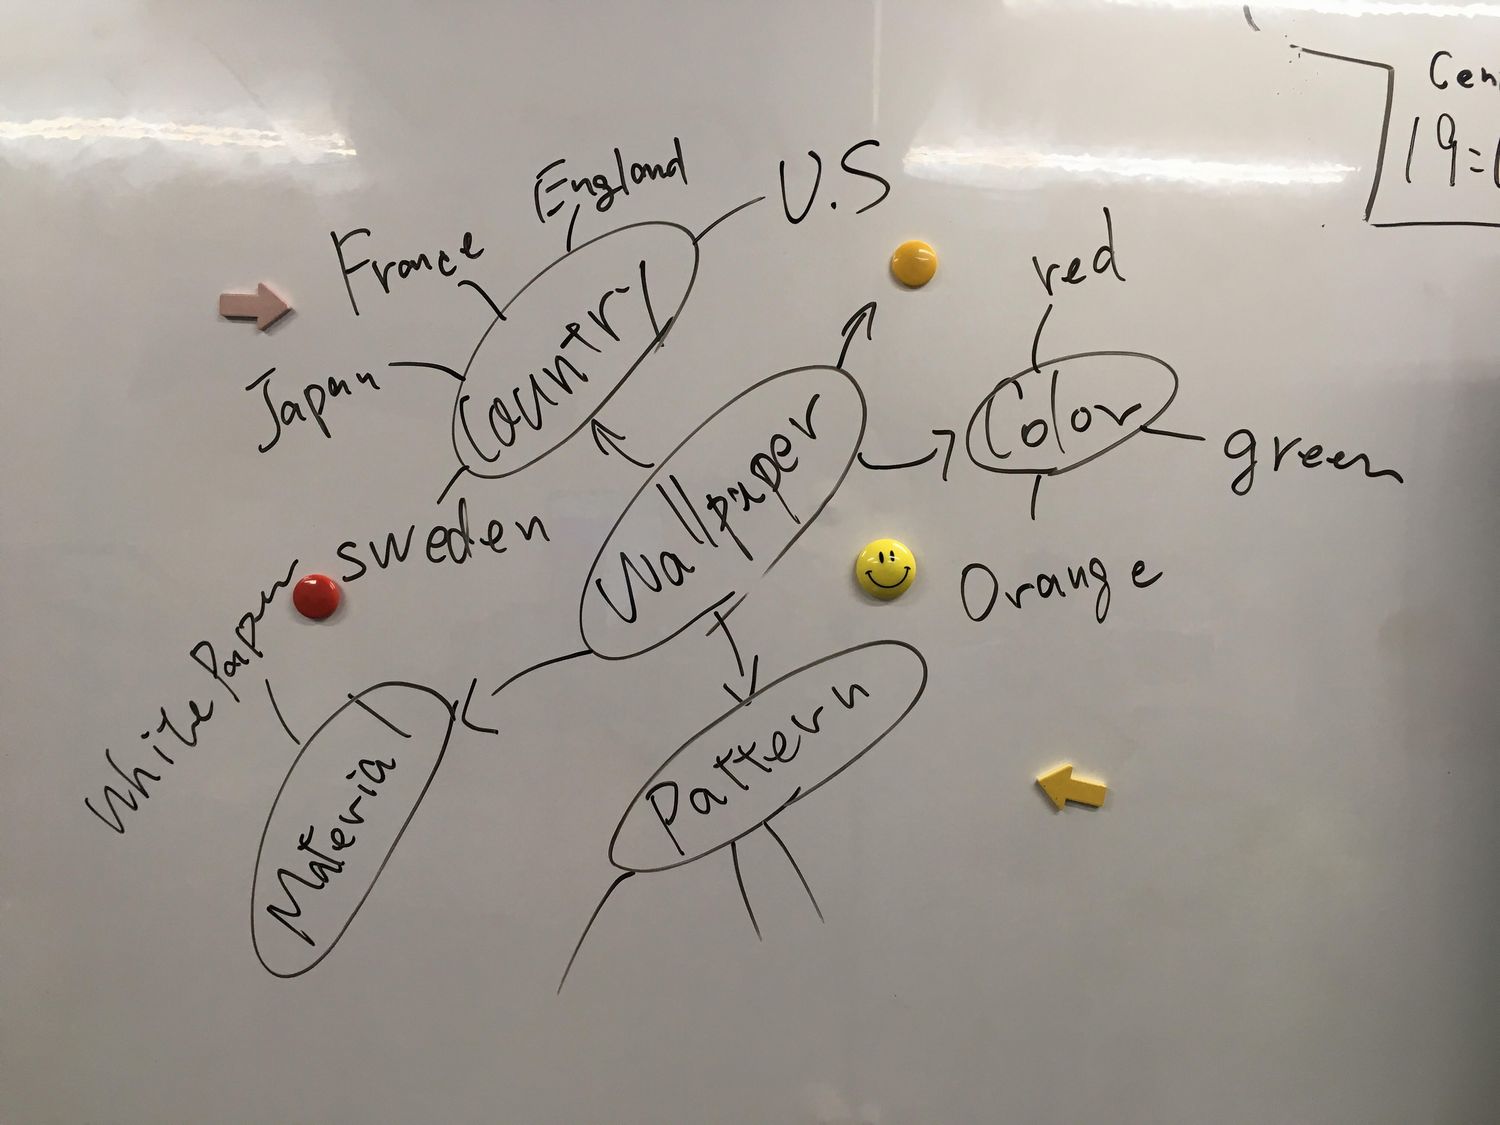 England
U.S
France
Country
Japan
Sweden
red
Color
green
Orange
Wallpaper
White Paper
Material
Pattern
Cen
19=